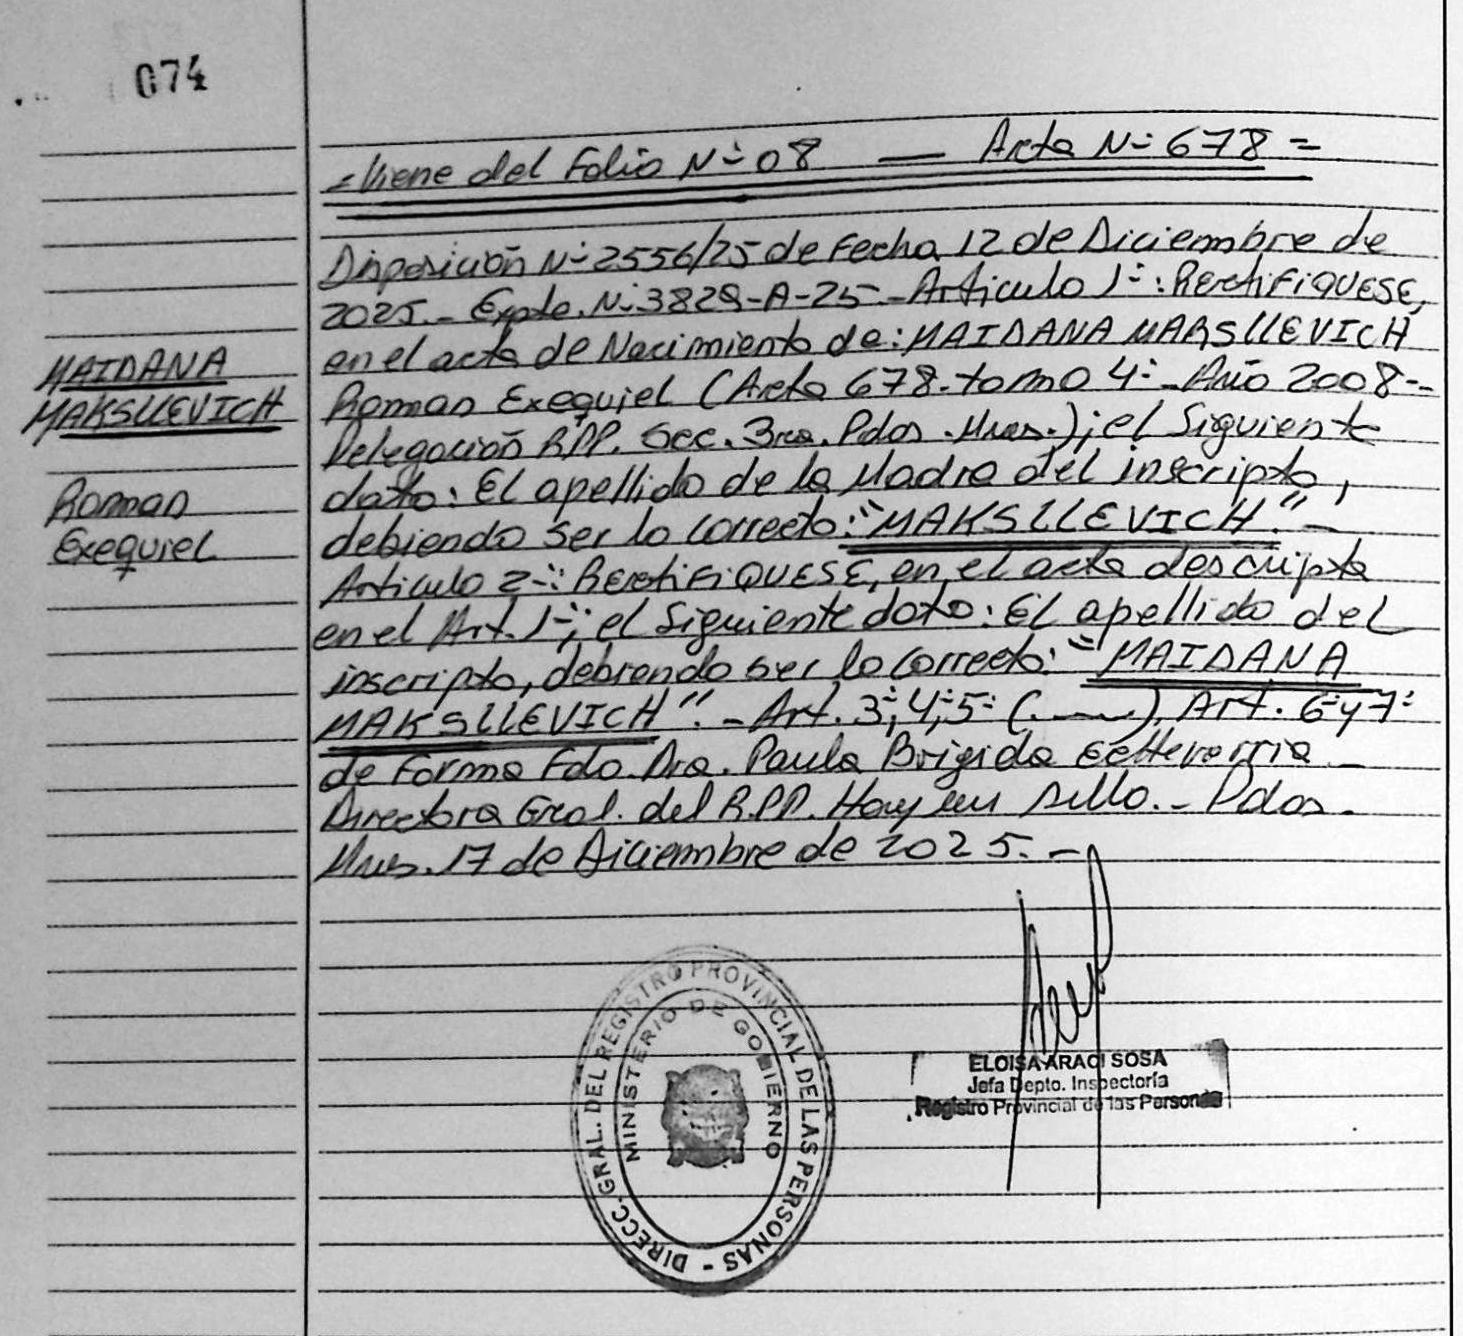 074
=Viene del Folio Nº 08 — Acta Nº 678=
Disposición Nº 2556/25 de Fecha 12 de Diciembre de
2025.- Expte. Nº 3829-A-25- Articulo 1º: RectiFiQUESE,
en el acta de Nacimiento de: MAIDANA MARSLLEVICH
Roman Exequiel (Acta 678- tomo 4º- Año 2008-
Delegación RPP. Sec. 3ra. Pdas. Mnes.); el Siguiente
dato: El apellido de la Madre del inscripto,
debiendo ser lo correcto: "MAKSLLEVICH"-
Articulo 2º: RectiFiQUESE, en el acta descripta
en el Art. 1º; el Siguiente dato: El apellido del
inscripto, debiendo ser lo correcto: "MAIDANA
MAKSLLEVICH".- Art. 3º, 4º, 5º (.......), Art. 6º y 7º
de Forma Fdo. Dra. Paula Brigida Echeverria
Directora Gral. del R.P.P. Hay un sello.- Pdas.
Mnes. 17 de Diciembre de 2025.-
MAIDANA
MAKSLLEVICH
Roman
Exequiel
DIRECC. GRAL. DEL REGISTRO PROVINCIAL DE LAS PERSONAS -
MINISTERIO DE GOBIERNO
ELOISA ARACI SOSA
Jefa Depto. Inspectoría
Registro Provincial de las Personas